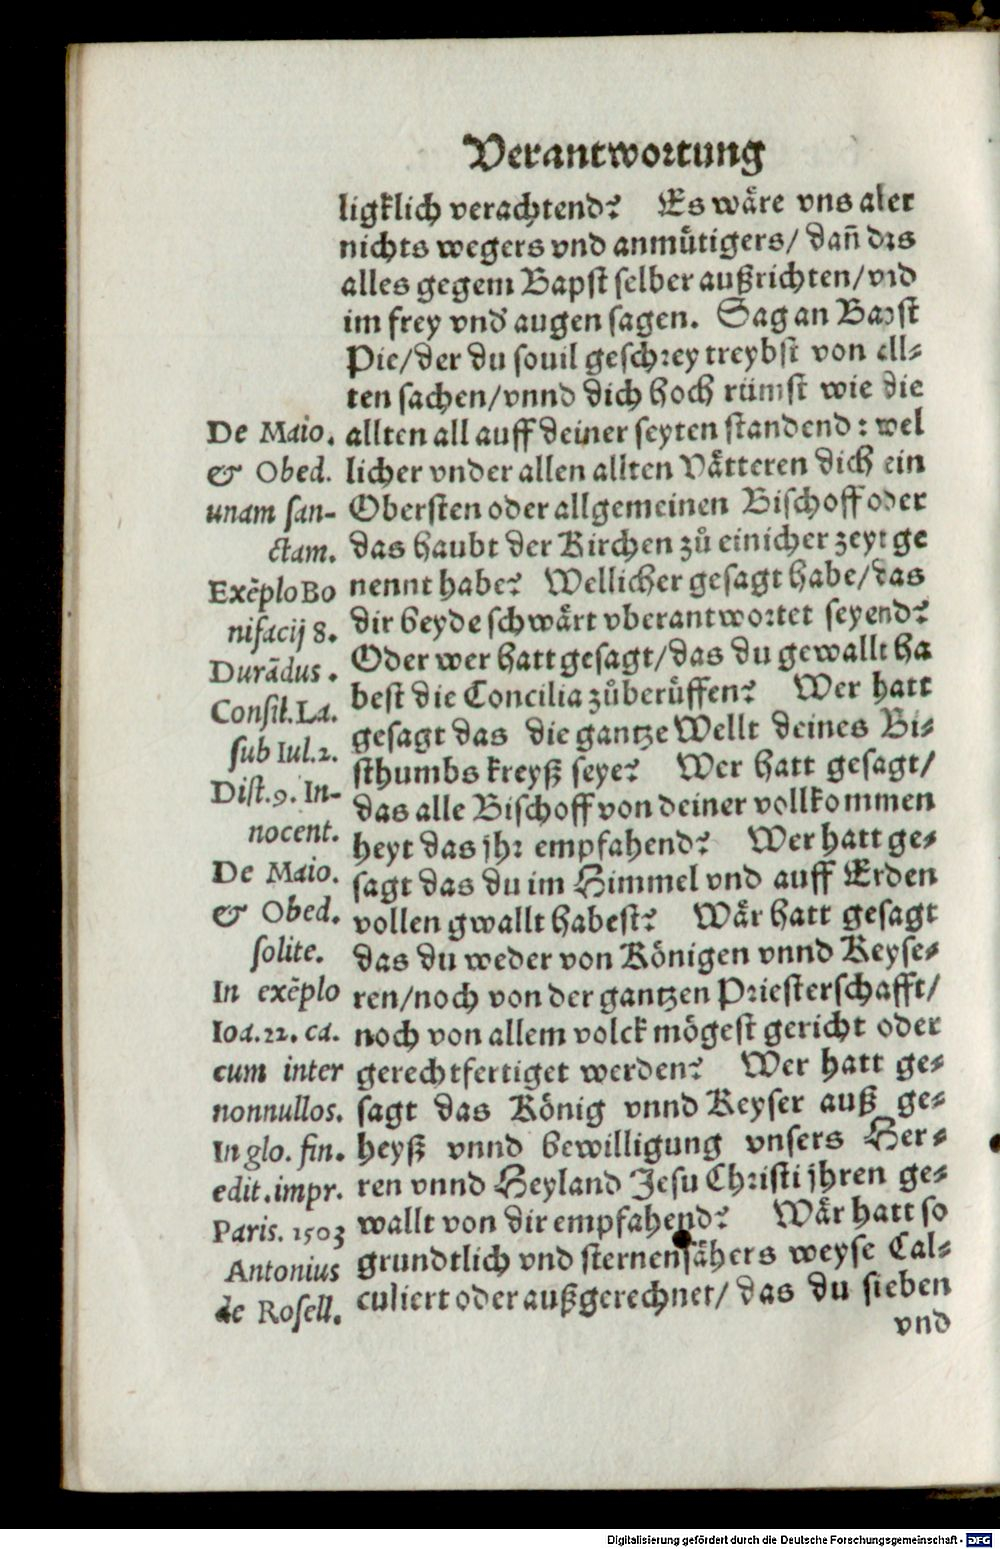 Verantwortung
ligklich verachtend? Es wäre vns aber
nichts wegers vnd anmütigers/ dañ das
alles gegem Bapst selber außrichten/vnd
im frey vnd augen sagen. Sag an Bapst
Pie/der du souil geschrey treybst von all⸗
ten sachen/vnnd dich hoch rümst wie die
allten all auff deiner seyten standend: wel
licher vnder allen allten Vätteren dich ein
Obersten oder allgemeinen Bischoff oder
das haubt der Kirchen zů einicher zeyt ge
nennt habe? Wellicher gesagt habe/das
dir beyde schwärt vberantwortet seyend?
Oder wer hatt gesagt/das du gewallt ha
best die Concilia zůberůffen? Wer hatt
gesagt das die gantze Wellt deines Bi⸗
sthumbs kreyß seye? Wer hatt gesagt/
das alle Bischoff von deiner vollkommen
heyt das jhr empfahend? Wer hatt ge⸗
sagt das du im Himmel vnd auff Erden
vollen gwallt habest? Wär hatt gesagt
das du weder von Königen vnnd Keyse⸗
ren/noch von der gantzen Priesterschafft/
noch von allem volck mögest gericht oder
gerechtfertiget werden? Wer hatt ge⸗
sagt das König vnnd Keyser auß ge⸗
heyß vnnd bewilligung vnsers Her⸗
ren vnnd Heyland Jesu Christi jhren ge⸗
wallt von dir empfahend? Wär hatt so
grundtlich vnd sternensähers weyse Cal⸗
culiert oder außgerechnet/ das du sieben
vnd
De Maio.
& Obed.
unam san-
ctam.
Exẽplo Bo
nifacij 8.
Durãdus.
Consil. La.
sub Iul. 2.
Dist. 9. In-
nocent.
De Maio.
& Obed.
solite.
In exẽplo
Ioa. 22. ca.
cum inter
nonnullos.
In glo. fin.
edit. impr.
Paris. 1503
Antonius
de Rosell.
Digitalisierung gefördert durch die Deutsche Forschungsgemeinschaft - DFG